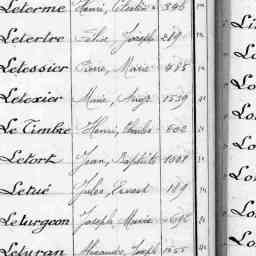 Leterme Henri, Célestin 346
Letertre Félix, Joseph 219
Letessier Pierre, Marie 485
Letexier Marie, Ange 1539
Le Timbre Henri, Charles 602
Letort Jean, Baptiste 1001
Letué Jules, Ernest 189
Leturgeon Joseph, Marie 696
Leturan Alexandre, Joseph 1355